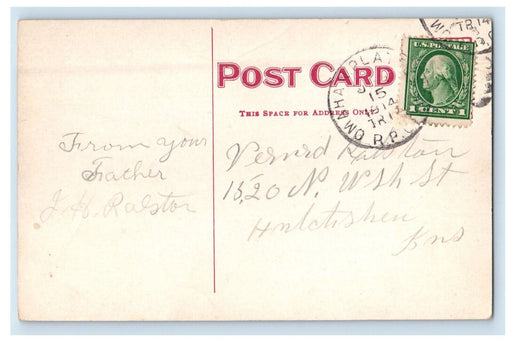 POST CARD
THIS SPACE FOR ADDRESS ONLY
U.S. POSTAGE
1 CENT 1
OMAHA
15
1914
R.P.O.
TR 14
From your
Father
Ralstor
Ralston
1520 N. St
Hutchshen
Kns